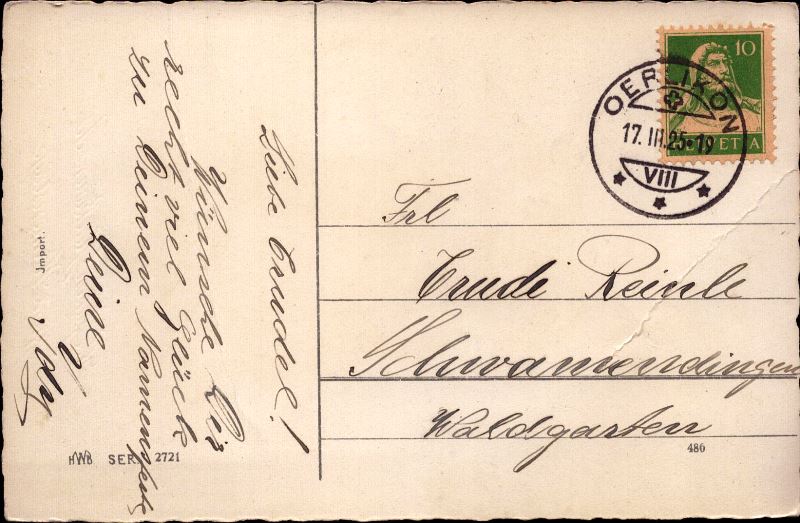 Liebe Trudel!
Wünsche Dir
recht viel Glück
zu Deinem Namensfest
Deine
Jmport.
HWB SER. 2721
10
HELVETIA
OERLIKON
17. III. 25-19
VIII
Frl
Trudi Reinle
Schwamendingen
Waldgarten
486